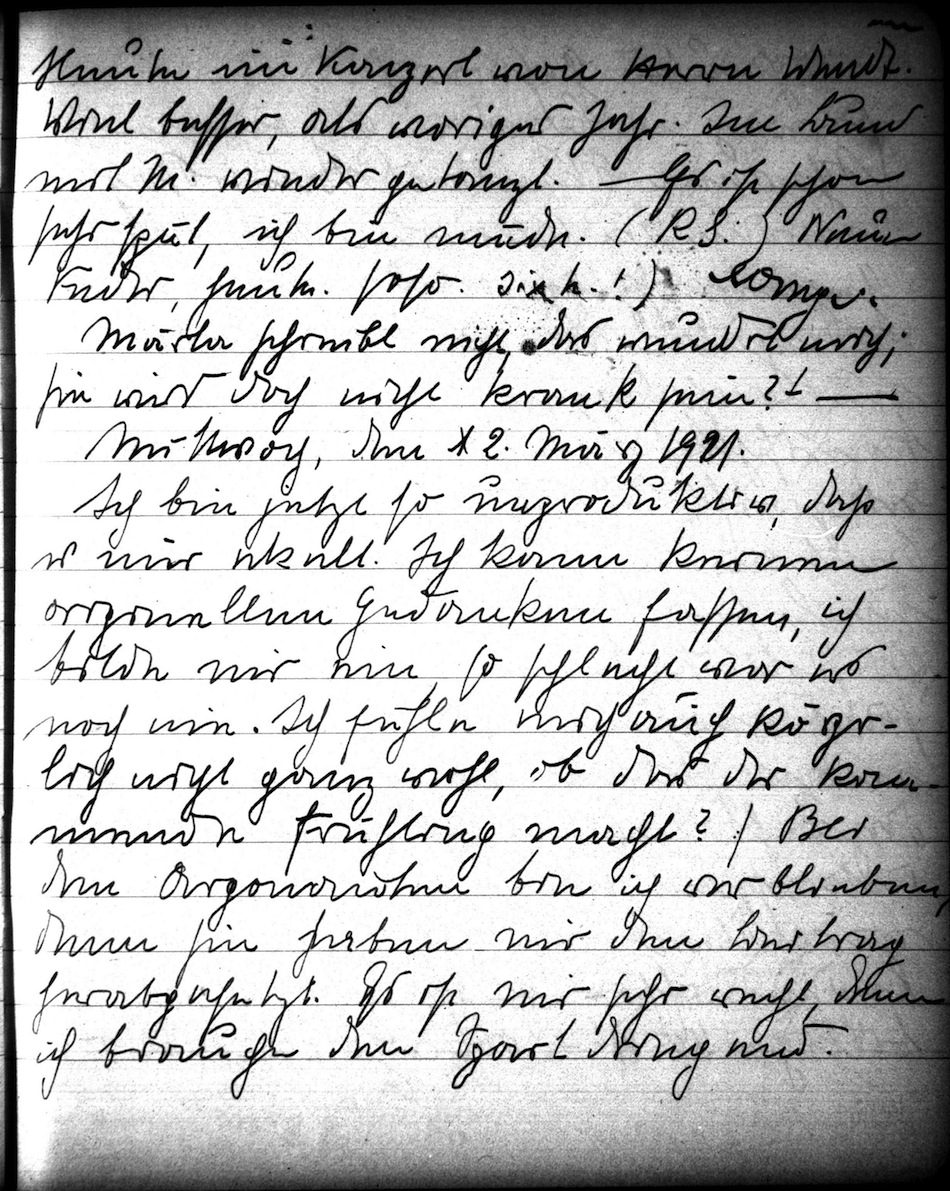 Heute im Konzert von Herrn Wendt.
Viel besser, als voriges Jahr. Im Bund
mit M. wieder getanzt. — Es ist schon
sehr spät, ich bin müde. (R. S.) Neue
Feder, heute. soso.
Märta schreibt nicht, das wundert mich;
sie wird doch nicht krank sein?! —
Mittwoch, den 2. März 1921.
Ich bin jetzt so unproduktiv, dass
es mir ekelt. Ich kann keinen
originellen Gedanken fassen, ich
bilde mir ein, so schlecht war es
noch nie. Ich fühle mich auch körper-
lich nicht ganz wohl, ob das der kom-
mende Frühling macht? / Bei
den Argonauten bin ich verblieben,
denn sie haben mir den Beitrag
herabgesetzt. Es ist mir sehr recht, denn
ich brauche den Sport dringend.